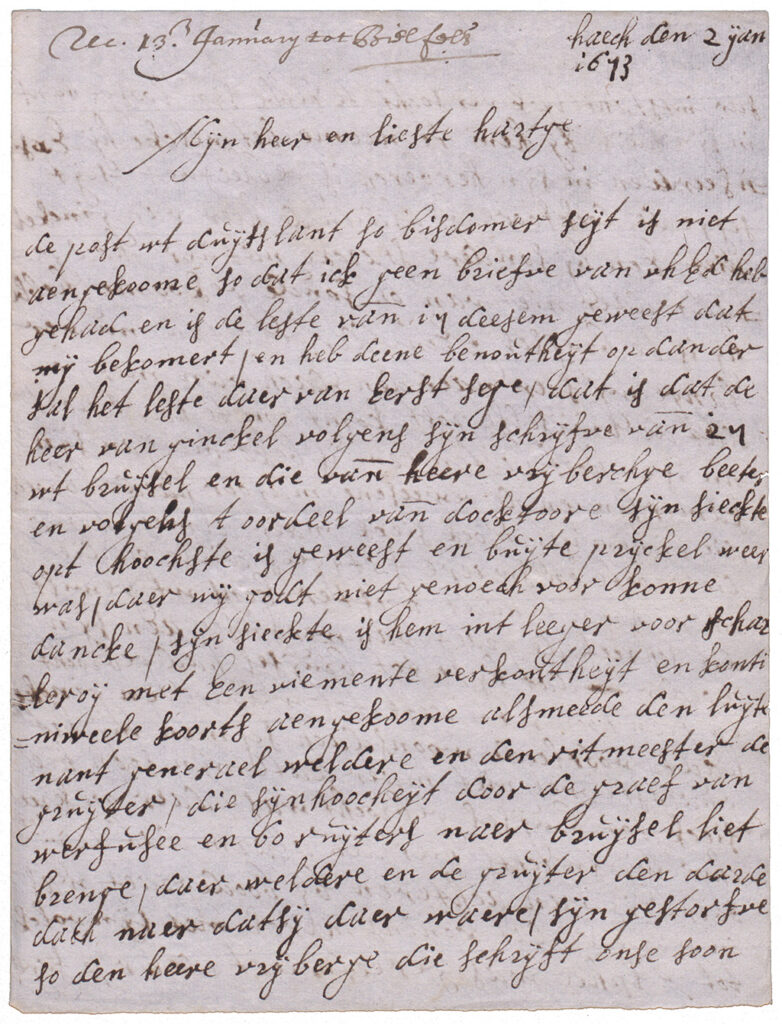 Rec. 13. January tot Bilefelt
haech den 2 yan
1673
Mijn heer en lieste hartge
de post wt duijtslant so bisdomer seijt is niet
aengekoome so dat ick geen briefve van uhEd heb
gehad en is de leste vann in deesem geweest dat
mij bekomert / en heb deene benoutheijt op dander
sal het leste daer van eerst sege / dat is dat de
heer van ginckel volgens sijn schrijfve vann
wt bruijsel en die vann heere vrijberchge beeter
en volgens t oordeel vann docktoore sijn sieckte
opt hoochste is geweest en buijte prijckel weer
was / daer wij godt niet genoech voor konne
dancke / sijn sieckte is hem int leeger voor schar
=leroij met een viemente verkoutheijt en konti
=nuweele koorts aengekoome alsmeede den luijte
nant generael weldere en den ritmeester de
gruijter / die sijn hoocheijt door de graef van
werfusee en 60 ruijters naer bruijsel liet
brenge / daer weldere en de gruijter den darde
dach naer datsij daer waere / sijn gestorfve
so den heere vrijberge die schrijft onse soon